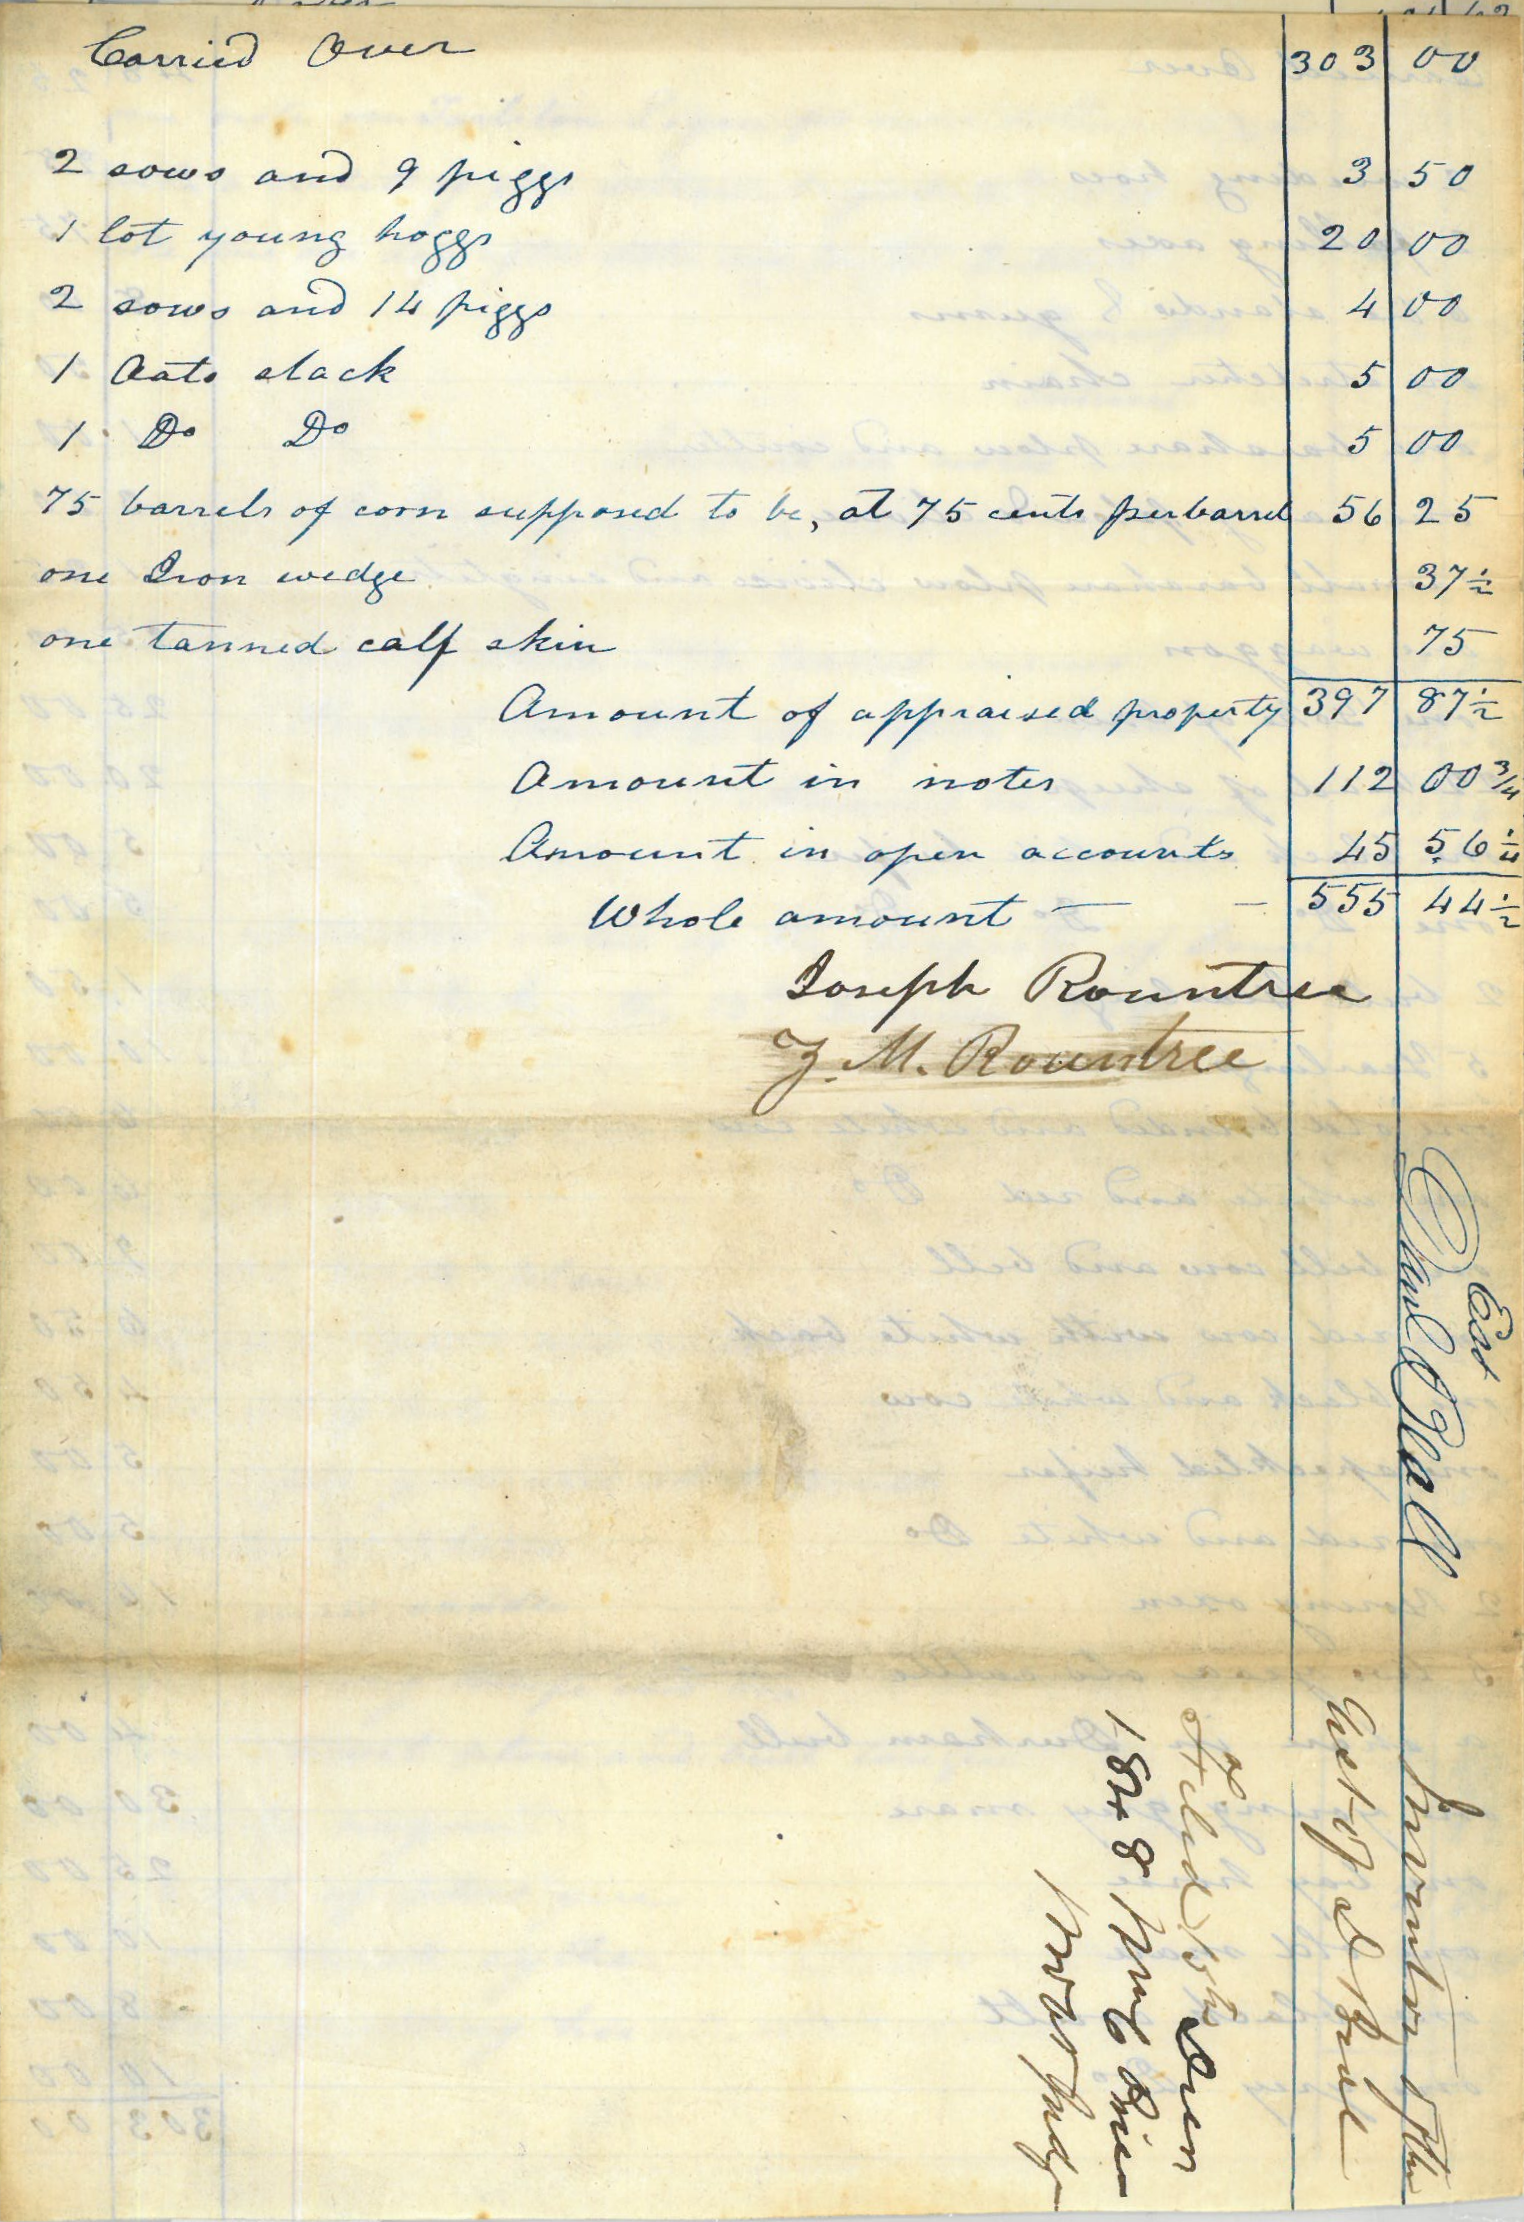 Carried Over 303 00
2 sows and 9 piggs 3 50
1 lot young hoggs 20 00
2 sows and 14 piggs 4 00
1 Oats stack 5 00
1 Do Do 5 00
75 barrels of corn supposed to be, at 75 cents per barrel 56 25
one Iron wedge 37 1/2
one tanned calf skin 75
Amount of appraised property 397 87 1/2
Amount in notes 112 00 3/4
Amount in open accounts 45 56 1/4
Whole amount — — 555 44 1/2
Joseph Rountree
Z. M. Rountree
East
Hall
Inventory of the
Est of
Filed
1848